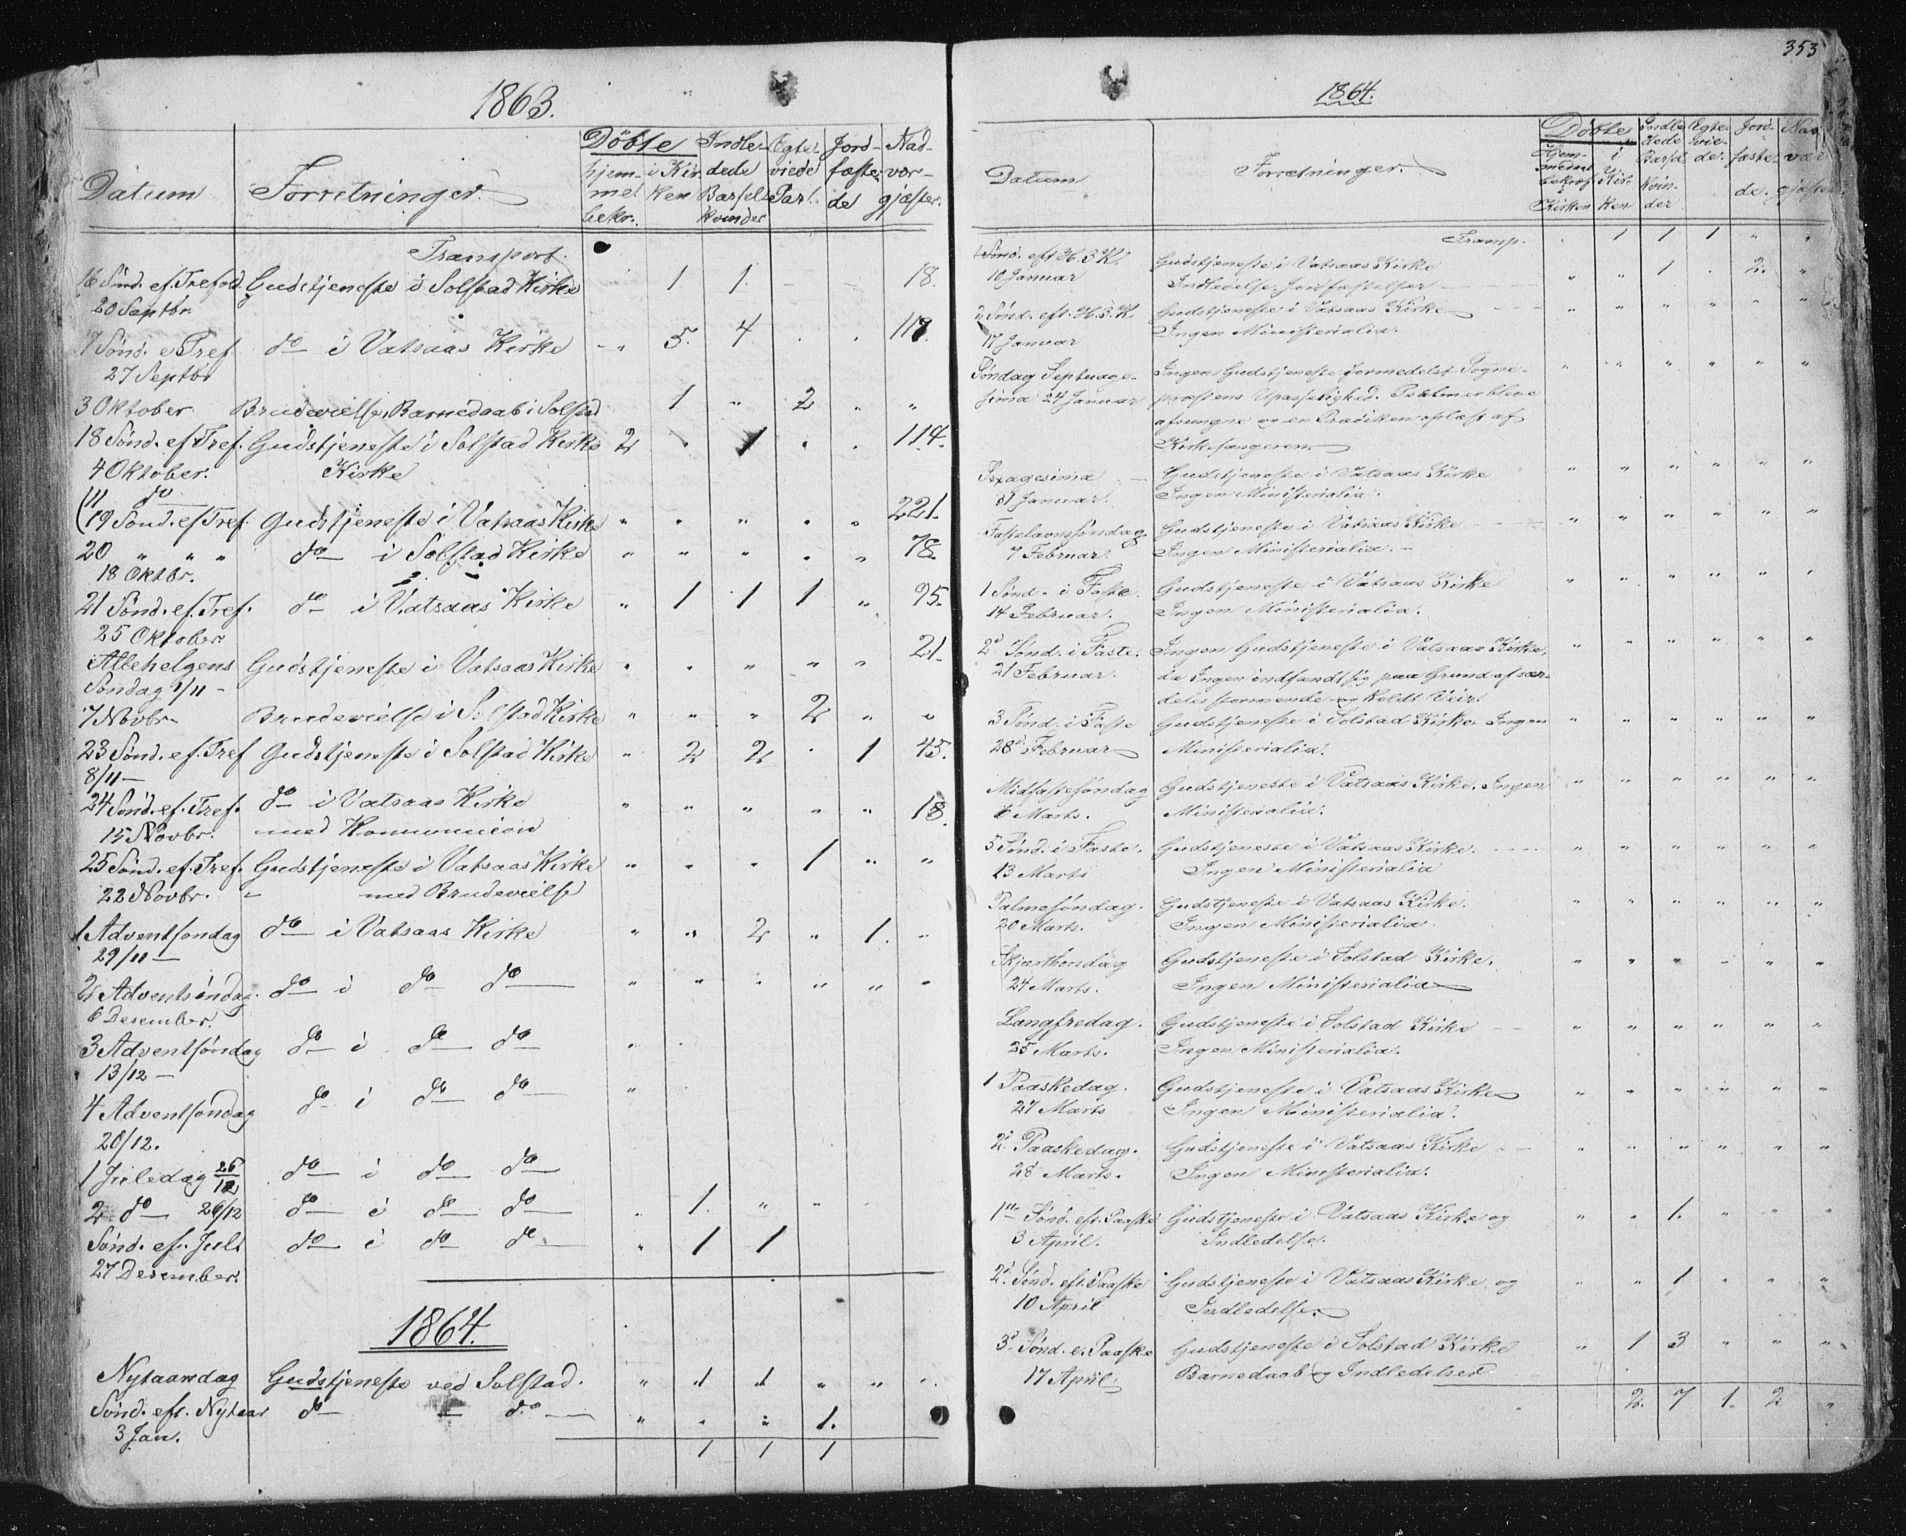 1863.
Datum Forretninger. Döbte Indle- Egte- Jord- Nad-
hjem- i Kir dede viede fæste- vor-
met ken Barsel Par. de gjæster.
bekr. kvinder
Transport.
16 Sönd. ef. Trefold Gudstjeneste i Solstad Kirke 1 1. 18.
20 Septbr.
17 Sönd. e. Tref. do i Vatsaas Kirke " 5. 4
27 Septbr
3 Oktober Brudevielse, Barnedaab i Solstad 1 " 2 " "
18 Sönd. ef. Tref. Gudstjeneste i Solstad Kirke 2 1 114.
4 Oktober. Kirke
11 do
19 Sönd. ef Tref. Gudstjeneste i Vatsaas Kirke " " " " " 221.
20 " " " do i Solstad Kirke " " " " " 78.
18 Oktbr.
21 Sönd. ef. Tref. do i Vatsaas Kirke " 1 1 1 " 95.
25 Oktober
Allehelgens Gudstjeneste i Vatsaas Kirke " " " " " 21.
Söndag 1/11 -
7 Novbr Brudevielse i Solstad Kirke " " " 2 " "
23 Sönd. ef. Tref Gudstjeneste i Solstad Kirke " 2 2 . 1 45.
8/11 -
24 Sönd. ef. Tref. do i Vatsaas Kirke " " " " " 18.
15 Novbr. med Kommunion
25 Sönd. ef. Tref. Gudstjeneste i Vatsaas Kirke " " " 1 " "
22 Novbr. med Brudevielse
1 Adventsöndag do i Vatsaas Kirke " " 2 " 1. "
29/11 -
2 Adventsöndag. do i do do " " " " " "
6 Desember.
3 Adventsöndag do i do do " "
13/12 -
4 Adventsöndag do i do do "
20/12.
1 Juledag do i do do
2 do 26/12 do i do do " 1. " " "
Sönd. ef. Jul do i do do " 1 1
27 Desember.
1864.
Nytaarsdag Gudstjeneste ved Solstad. " 1 1 " " "
Sönd. eft. Nytaar do do " " " 1.
3 Jan.
1 1 1
353
1864.
Datum Forretninger. Döbte Indle Egte- Jord- Nad
Hjem- i dede vie- fæste- vor
medöbt Kir- Barsel de. de. gjæster
bekræf. ken kvin-
Kirken der
Transp. " 1 1 1 " "
1 Sönd. eft H. 3 K. Gudstjeneste i Vatsaas Kirke
10 Januar Indledelse, Jordfæstelser " " 1 . 2. "
2 Sönd. eft. H. 3. K. Gudstjeneste i Vatsaas Kirke " " " " " "
17 Januar Ingen Ministerialia.
Söndag Septuage- Ingen Gudstjeneste formedelst Sogne- " " " " " "
sima 24 Januar præstens Upasselighed. Psalmer bleve
afsungne og en Prædiken oplæst af
Kirkesangeren
Sexagesima Gudstjeneste i Vatsaas Kirke " " " " " "
31 Januar. Ingen Ministerialia.
Fastelavnssöndag Gudstjeneste i Vatsaas Kirke " " " " " "
7 Februar. Ingen Ministerialia.
1 Sönd. i Faste. Gudstjeneste i Vatsaas Kirke " " " " " "
14 Februar. Ingen Ministerialia.
2d Sönd. i Faste. Ingen Gudstjeneste i Vatsaas Kirke, " " " " " "
21 Februar. da Ingen indfandt sig paa Grund af sær-
deles stormende og koldt Veir.
3 Sönd. i Faste Gudstjeneste i Solstad Kirke. Ingen " " " " " "
28d Februar Ministerialia.
Midfastesöndag Gudstjeneste i Vatsaas Kirke. Ingen " " " " " "
6 Marts. Ministerialia.
5 Sönd. i Faste. Gudstjeneste i Vatsaas Kirke. " " " " " "
13 Marts Ingen Ministerialia
Palmesöndag. Gudstjeneste i Vatsaas Kirke. " " " " " "
20 Marts. Ingen Ministerialia.
Skjærthorsdag Gudstjeneste i Solstad Kirke. " " " " " "
24 Marts. Ingen Ministerialia
Langfredag. Gudstjeneste i Solstad Kirke " " " " " "
25 Marts. Ingen Ministerialia.
1 Paaskedag. Gudstjeneste i Vatsaas Kirke " " " " " "
27 Marts Ingen Ministerialia.
2d Paaskedag. Gudstjeneste i Vatsaas Kirke " " " " " "
28 Marts. Ingen Ministerialia.
1ste Sönd. eft. Paaske Gudstjeneste i Vatsaas Kirke og " " 1. " " "
3 April. Indledelse.
2d Sönd. eft. Paaske Gudstjeneste i Vatsaas Kirke og " " 1 " " "
10 April Indledelse.
3d Sönd. e. Paaske Gudstjeneste i Solstad Kirke " 1 3 " " "
17 April Barnedaab og Indledelser
2. 7 1. 2 "